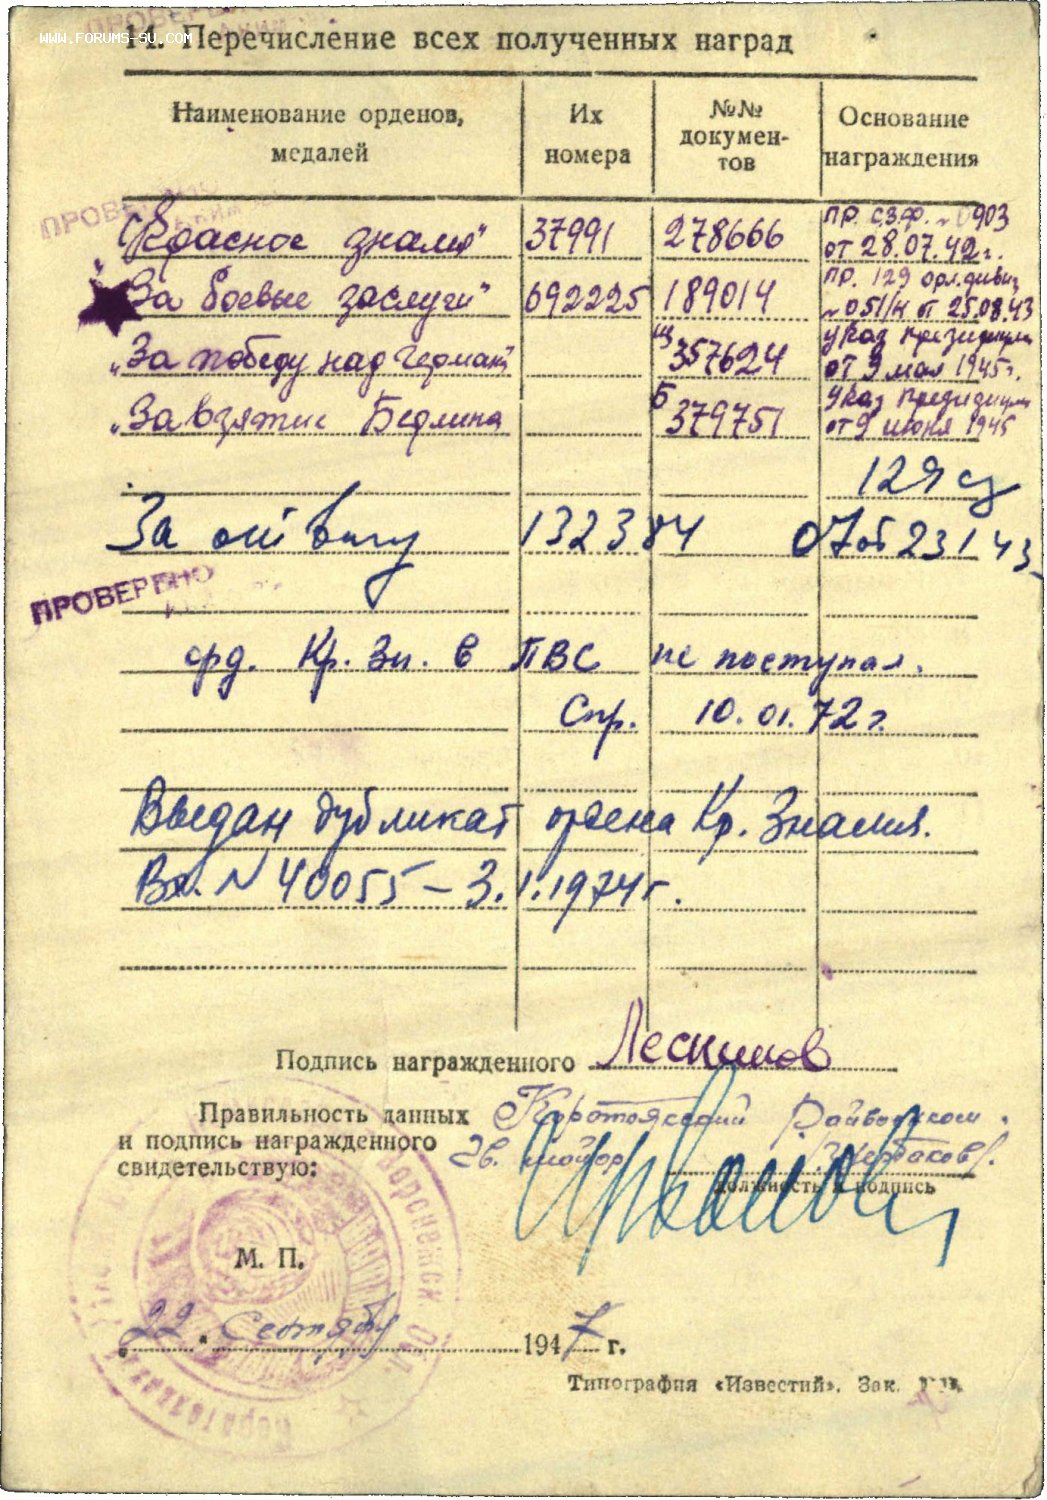 ПРОВЕРЕНО
www.forums-su.com
14. Перечисление всех полученных наград
Наименование орденов, медалей
Их номера
№№ документов
Основание награждения
ПРОВЕРЕНО
"Красное знамя" 37991 278666 ПР. С.З.Ф. № 0903 от 28.07.42 г.
"За боевые заслуги" 692225 189014 ПР. 129 орл. дивиз № 051/н от 25.08.43
"За победу над Герман" Щ 357624 Указ Президиума от 9 мая 1945 г.
"За взятие Берлина Б 379751 Указ Президиума от 9 июня 1945
129 сд
За отвагу 132384 07 от 23 1 43
ПРОВЕРЕНО
орд. Кр. Зн. в ПВС не поступал.
Спр. 10.01.72 г.
Выдан дубликат ордена Кр. Знамя.
Вх. № 40055 – 3.1.1974 г.
Подпись награжденного
Правильность данных Коротоякский Райвоенком
и подпись награжденного Гв. майор
свидетельствую:
должность и подпись
М. П.
22 Сентябр 1947 г.
Типография «Известий». Зак.